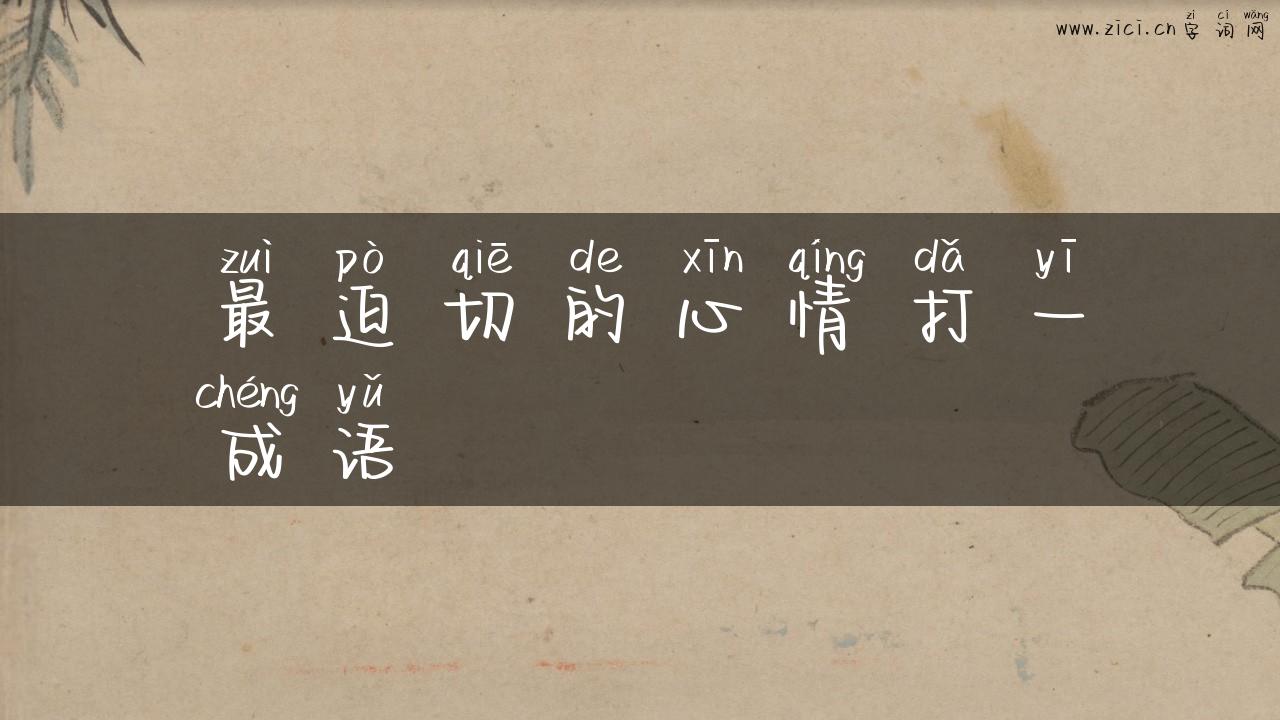 zì cí wǎng
www.zici.cn 字词网
zuì pò qiē de xīn qíng dǎ yī
最迫切的心情打一
chéng yǔ
成语